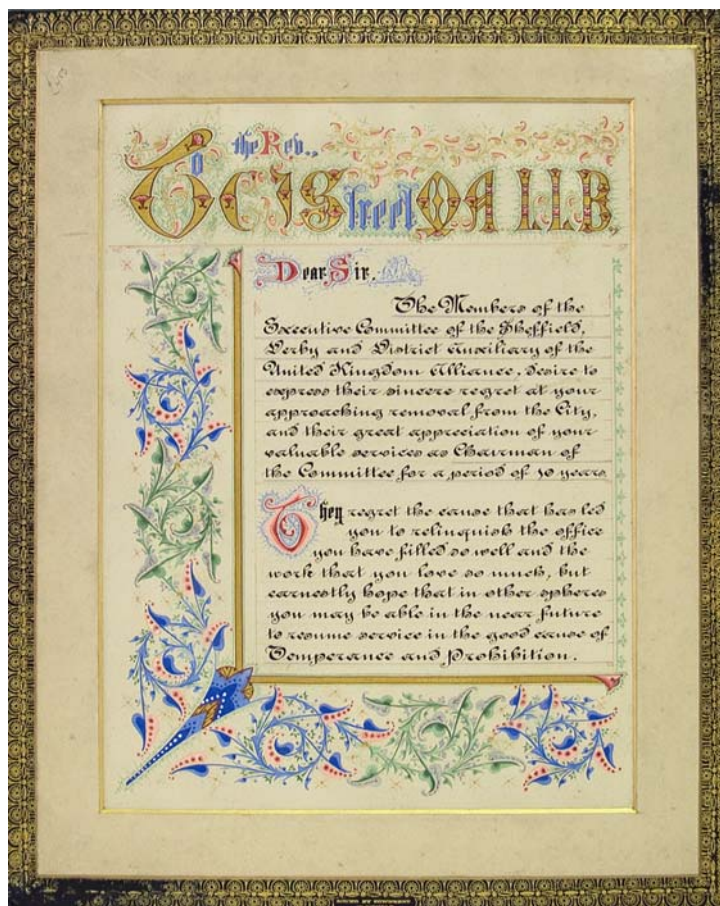 To the Rev.,
C J Street MA LLB.
Dear Sir.
The Members of the
Executive Committee of the Sheffield,
Derby and District Auxiliary of the
United Kingdom Alliance, desire to
express their sincere regret at your
approaching removal from the City,
and their great appreciation of your
valuable services as Chairman of
the Committee for a period of 10 years
They regret the cause that has led
you to relinquish the office
you have filled so well and the
work that you love so much, but
earnestly hope that in other spheres
you may be able in the near future
to resume service in the good cause of
Temperance and Prohibition.